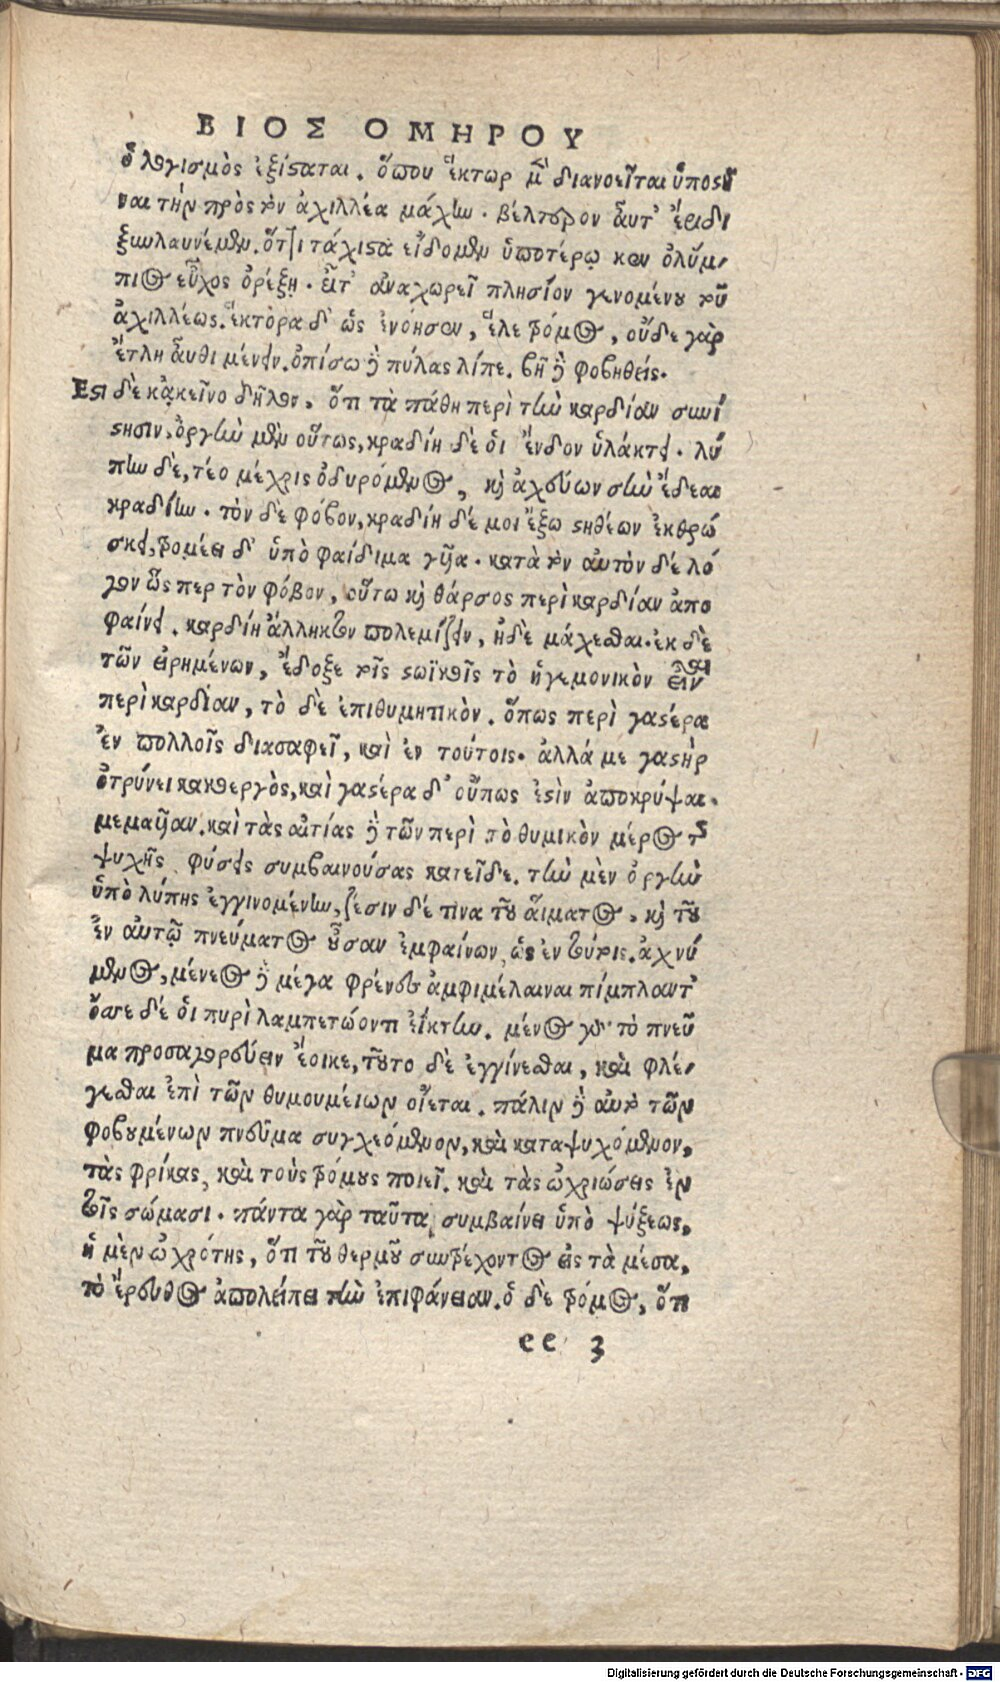 ΒΙΟΣ ΟΜΗΡΟΥ
ὁ λογισμὸς ἐξίσταται. ὅπου ἕκτωρ μὲν διανοεῖται ὑποστῆ
ναι τὴν πρὸς τὸν ἀχιλλέα μάχην. βέλτερον αὖτ' ἔριδι
ξυνελαυνέμεν. ὅττι τάχιστα εἴδομεν ὁποτέρῳ κεν ὀλύμ-
πιος εὖχος ὀρέξῃ. εἶτ' ἀναχωρεῖ πλησίον γενομένου τοῦ
ἀχιλλέως. ἕκτορα δ' ὡς ἐνόησεν, ἕλε τρόμος, οὐδε γὰρ
ἔτλη αὖθι μένειν. ὀπίσω δὲ πύλας λίπε. βῆ δὲ φοβηθείς.
Εστι δὲ κἀκεῖνο δῆλον, ὅτι τὰ πάθη περὶ τὴν καρδίαν συνί
στησιν, ὀργὴν μὲν οὕτως, κραδίη δέ ὁι ἔνδον ὑλάκτει. λύ
πην δὲ, τέο μέχρις ὀδυρόμενος, καὶ ἀχεύων σὴν ἔδεαι
κραδίην. τὸν δε φόβον, κραδίη δέ μοι ἔξω στηθέων ἐκθρώ
σκει, τρομέει δ' ὑπὸ φαίδιμα γυῖα. κατὰ τὸν αὐτὸν δέ λό
γον ὥς περ τὸν φόβον, οὕτω καὶ θάρσος περὶ καρδίαν ἀπο
φαίνει. καρδίη ἄλληκτον πολεμίζειν, ἠδὲ μάχεσθαι. ἐκ δὲ
τῶν εἰρημένων, ἔδοξε τοῖς στωϊκοῖς τὸ ἡγεμονικὸν εἶναι
περὶ καρδίαν, τὸ δὲ ἐπιθυμητικὸν. ὅπως περὶ γαστέρα
ἐν πολλοῖς διασαφεῖ, καὶ ἐν τούτοις. ἀλλά με γαστὴρ
ὀτρύνει κακοεργὸς, καὶ γαστέρα δ' οὔπως ἐστὶν ἀποκρύψαι.
μεμαυῖαν. καὶ τὰς αἰτίας δὲ τῶν περὶ τὸ θυμικὸν μέρος τῆς
ψυχῆς φύσεις συμβαινούσας κατεῖδε. τὴν μὲν ὀργὴν
ὑπὸ λύπης ἐγγινομένην, ζέσιν δέ τινα τοῦ αἵματος, καὶ τοῦ
ἐν αὐτῷ πνεύματος οὖσαν ἐμφαίνων, ὡς ἐν τούτοις. ἀχνύ
μενος, μένεος δὲ μέγα φρένες ἀμφιμέλαιναι πίμπλαντ'
ὄσσε δέ ὁι πυρὶ λαμπετόωντι ἐΐκτην. μένος γοῦν τὸ πνεῦ
μα προσαγορεύειν ἔοικε, τοῦτο δὲ ἐγγίνεσθαι, καὶ φλέ-
γεσθαι ἐπὶ τῶν θυμουμένων οἴεται. πάλιν δὲ αὖ τὸ τῶν
φοβουμένων πνεῦμα συγχεόμενον, καὶ καταψυχόμενον,
τὰς φρίκας, καὶ τοὺς τρόμους ποιεῖ. καὶ τὰς ὠχριώσεις ἐν
τοῖς σώμασι. πάντα γὰρ ταῦτα συμβαίνει ὑπὸ ψύξεως,
ἡ μὲν ὠχρότης, ὅτι τοῦ θερμοῦ συντρέχοντος εἰς τὰ μέσα,
τὸ ἔρευθος ἀπολείπει τὴν ἐπιφάνειαν. ὁ δε τρόμος, ὅτι
ee 3
Digitalisierung gefördert durch die Deutsche Forschungsgemeinschaft - DFG